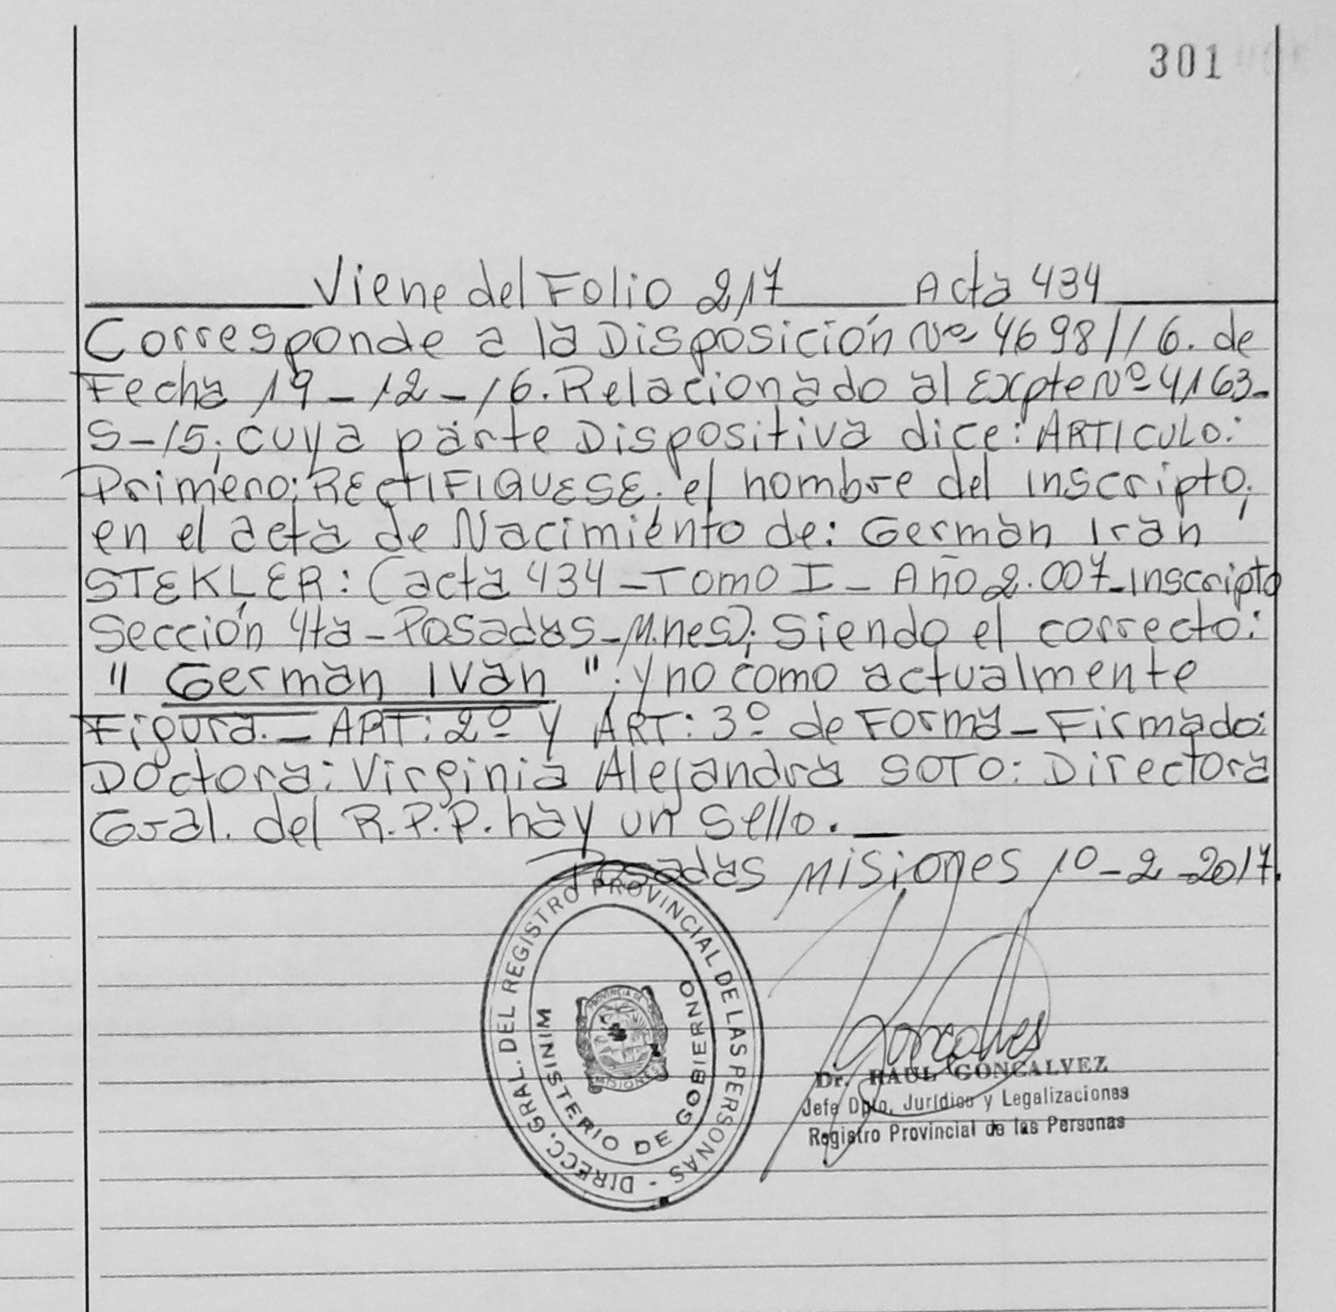 301
Viene del Folio 217 Acta 434
Corresponde a la Disposición Nº 4698//16. de
Fecha 19-12-16. Relacionado al Expte Nº 4163-
S-15; cuya parte Dispositiva dice: ARTICULO:
Primero; RECTIFIQUESE. el nombre del inscripto;
en el acta de Nacimiento de: Germán Iran
STEKLER: (acta 434-Tomo I- Año 2.007-Inscripto
Sección 4ta-Posadas-M.nes); siendo el correcto:
" Germán Iván "; y no como actualmente
Figura.- ART: 2º y ART: 3º de Forma- Firmado:
Doctora: Virginia Alejandra SOTO: Directora
Gral. del R.P.P. hay un sello.-
Posadas Misiones 10-2-2017.
DIRECC. GRAL. DEL REGISTRO PROVINCIAL DE LAS PERSONAS -
MINISTERIO DE GOBIERNO
PROVINCIA DE
MISIONES
Goncalves
Dr. RAUL GONCALVEZ
Jefe Dpto. Jurídico y Legalizaciones
Registro Provincial de las Personas